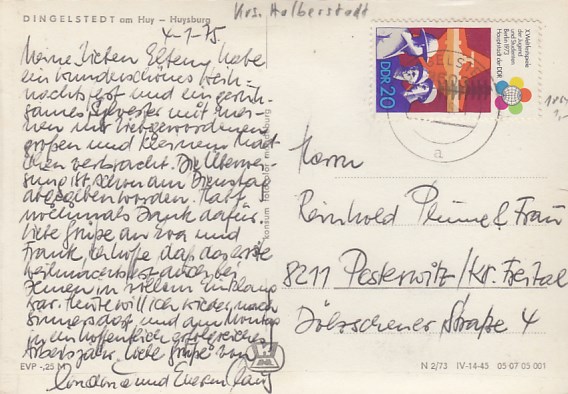 DINGELSTEDT am Huy – Huysburg
Krs. Halberstadt
4-1-75
Meine lieben Eltern, habe
ein wunderschönes Weih-
nachtsfest und ein geruh-
sames Sylvester mit mei-
nen mir liebgewordenen
großen und kleinen
verbracht. Die Überwei-
sung ist schon am Dienstag
abgegeben worden.
vielmals Dank dafür.
Liebe Grüße an Eva und
Frank, ich hoffe das das erste
Weihnachtsfest auch bei
Ihnen in vollem Einklang
war. Heute will ich wieder nach
und am Montag
in ein hoffentlich erfolgreiches
Arbeitsjahr. Liebe Grüße von
und Eueren
EVP -,25 M
konsum fotocolor magdeburg
X. Weltfestspiele
der Jugend
und Studenten
Berlin 1973
Hauptstadt der DDR
DDR 20
a
Herrn
Reinhold Plume & Frau
8211 Pesterwitz/Kr. Freital
Dölzschener Straße 4
N 2/73 IV-14-45 05 07 05 001